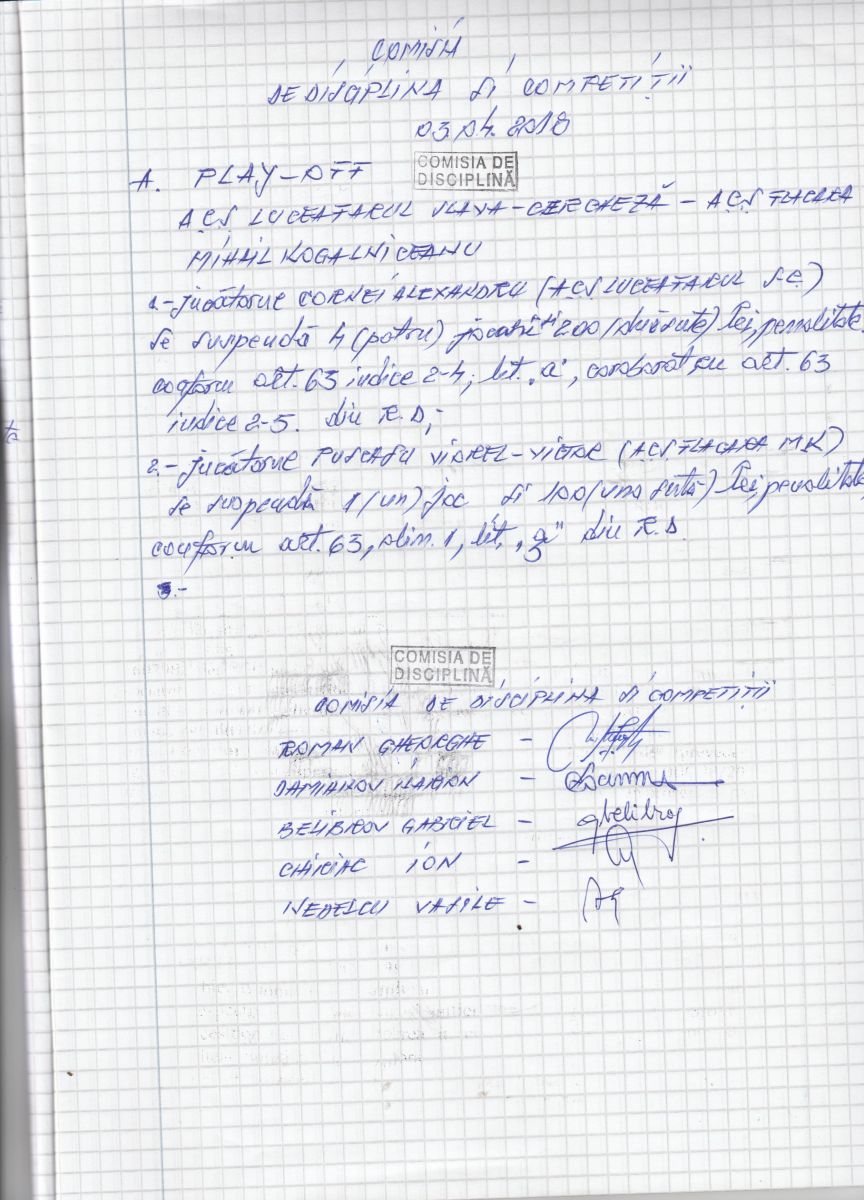 COMISIA
DE DISCIPLINA SI COMPETIȚII
03.04.2018
COMISIA DE
DISCIPLINĂ
A. PLAY-OFF
ACS LUCEAFARUL SLAVA-CERCHEZĂ - ACS FLACARA
MIHAIL KOGALNICEANU
1.-jucătorul CORNEI ALEXANDRU (ACS LUCEAFARUL S.C)
se suspendă 4 (patru) jocuri și 200 (două sute) lei, penalitate
conform art. 63 indice 2-4, lit. „a", coroborat cu art. 63
indice 2-5. din R.D,-
2.-jucătorul PUSCASU VIOREL-VICTOR (ACS FLACARA MK)
se suspendă 1 (un) joc si 100 (una sută) lei, penalitate
conform art. 63, alin. 1, lit. „g" din R.D.
3.-
COMISIA DE
DISCIPLINĂ
COMISIA DE DISCIPLINA SI COMPETIȚII
ROMAN GHEORGHE -
DAMIANOV ILARION -
BELIBROV GABRIEL - gbelibrov
CHIRIAC ION -
NEDELCU VASILE -